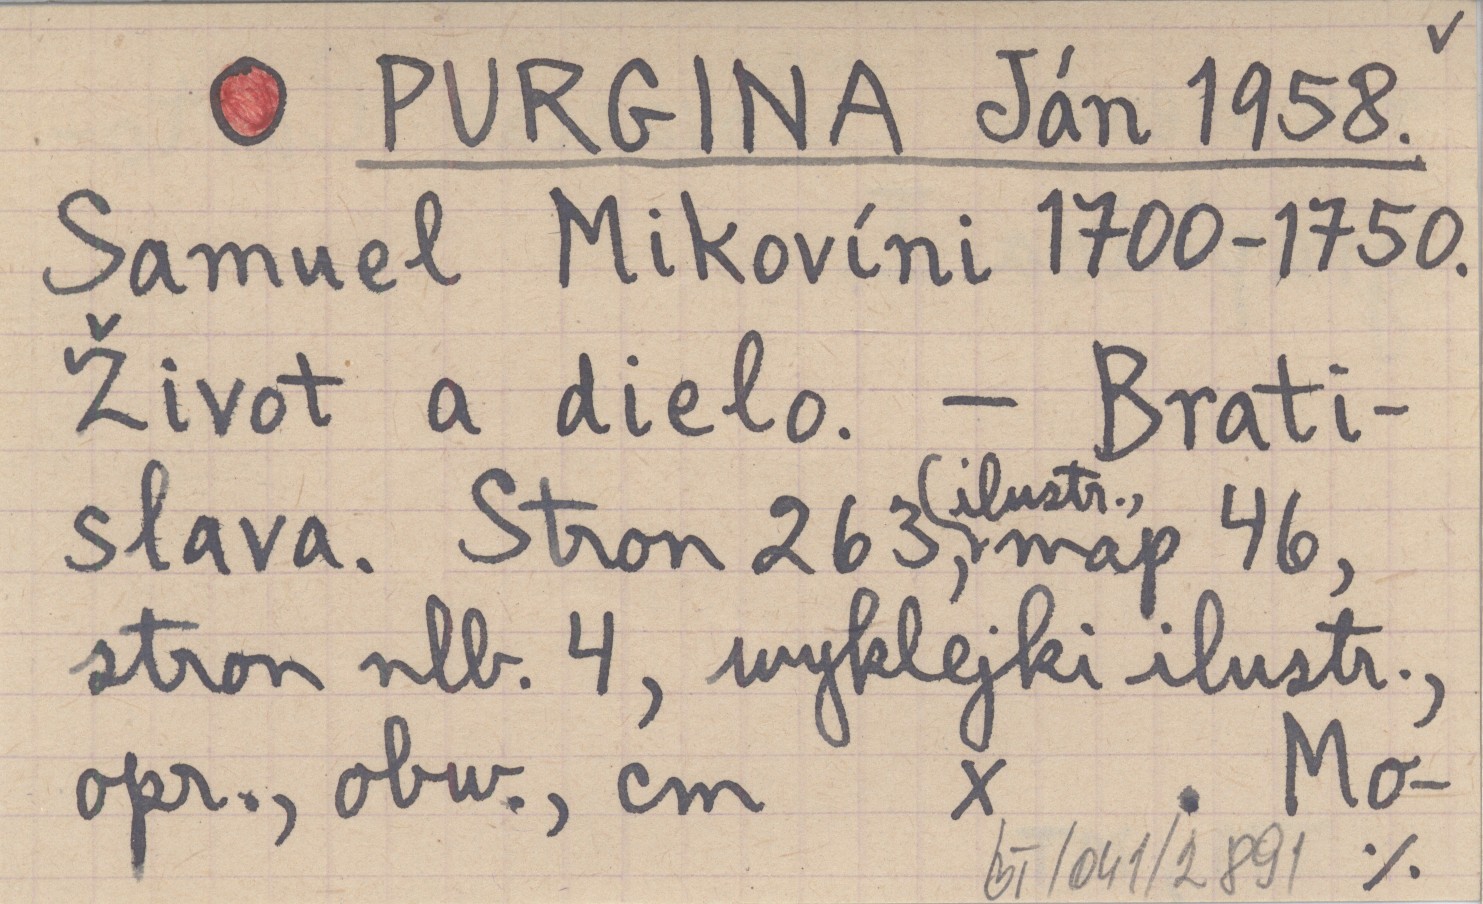 ✓
PURGINA Ján 1958.
Samuel Mikovíni 1700-1750.
Život a dielo. — Brati-
slava. Stron 263, (ilustr., map 46,
stron nlb. 4, wyklejki ilustr.,
opr., obw., cm x . Mo-
/041/2891 ·/.